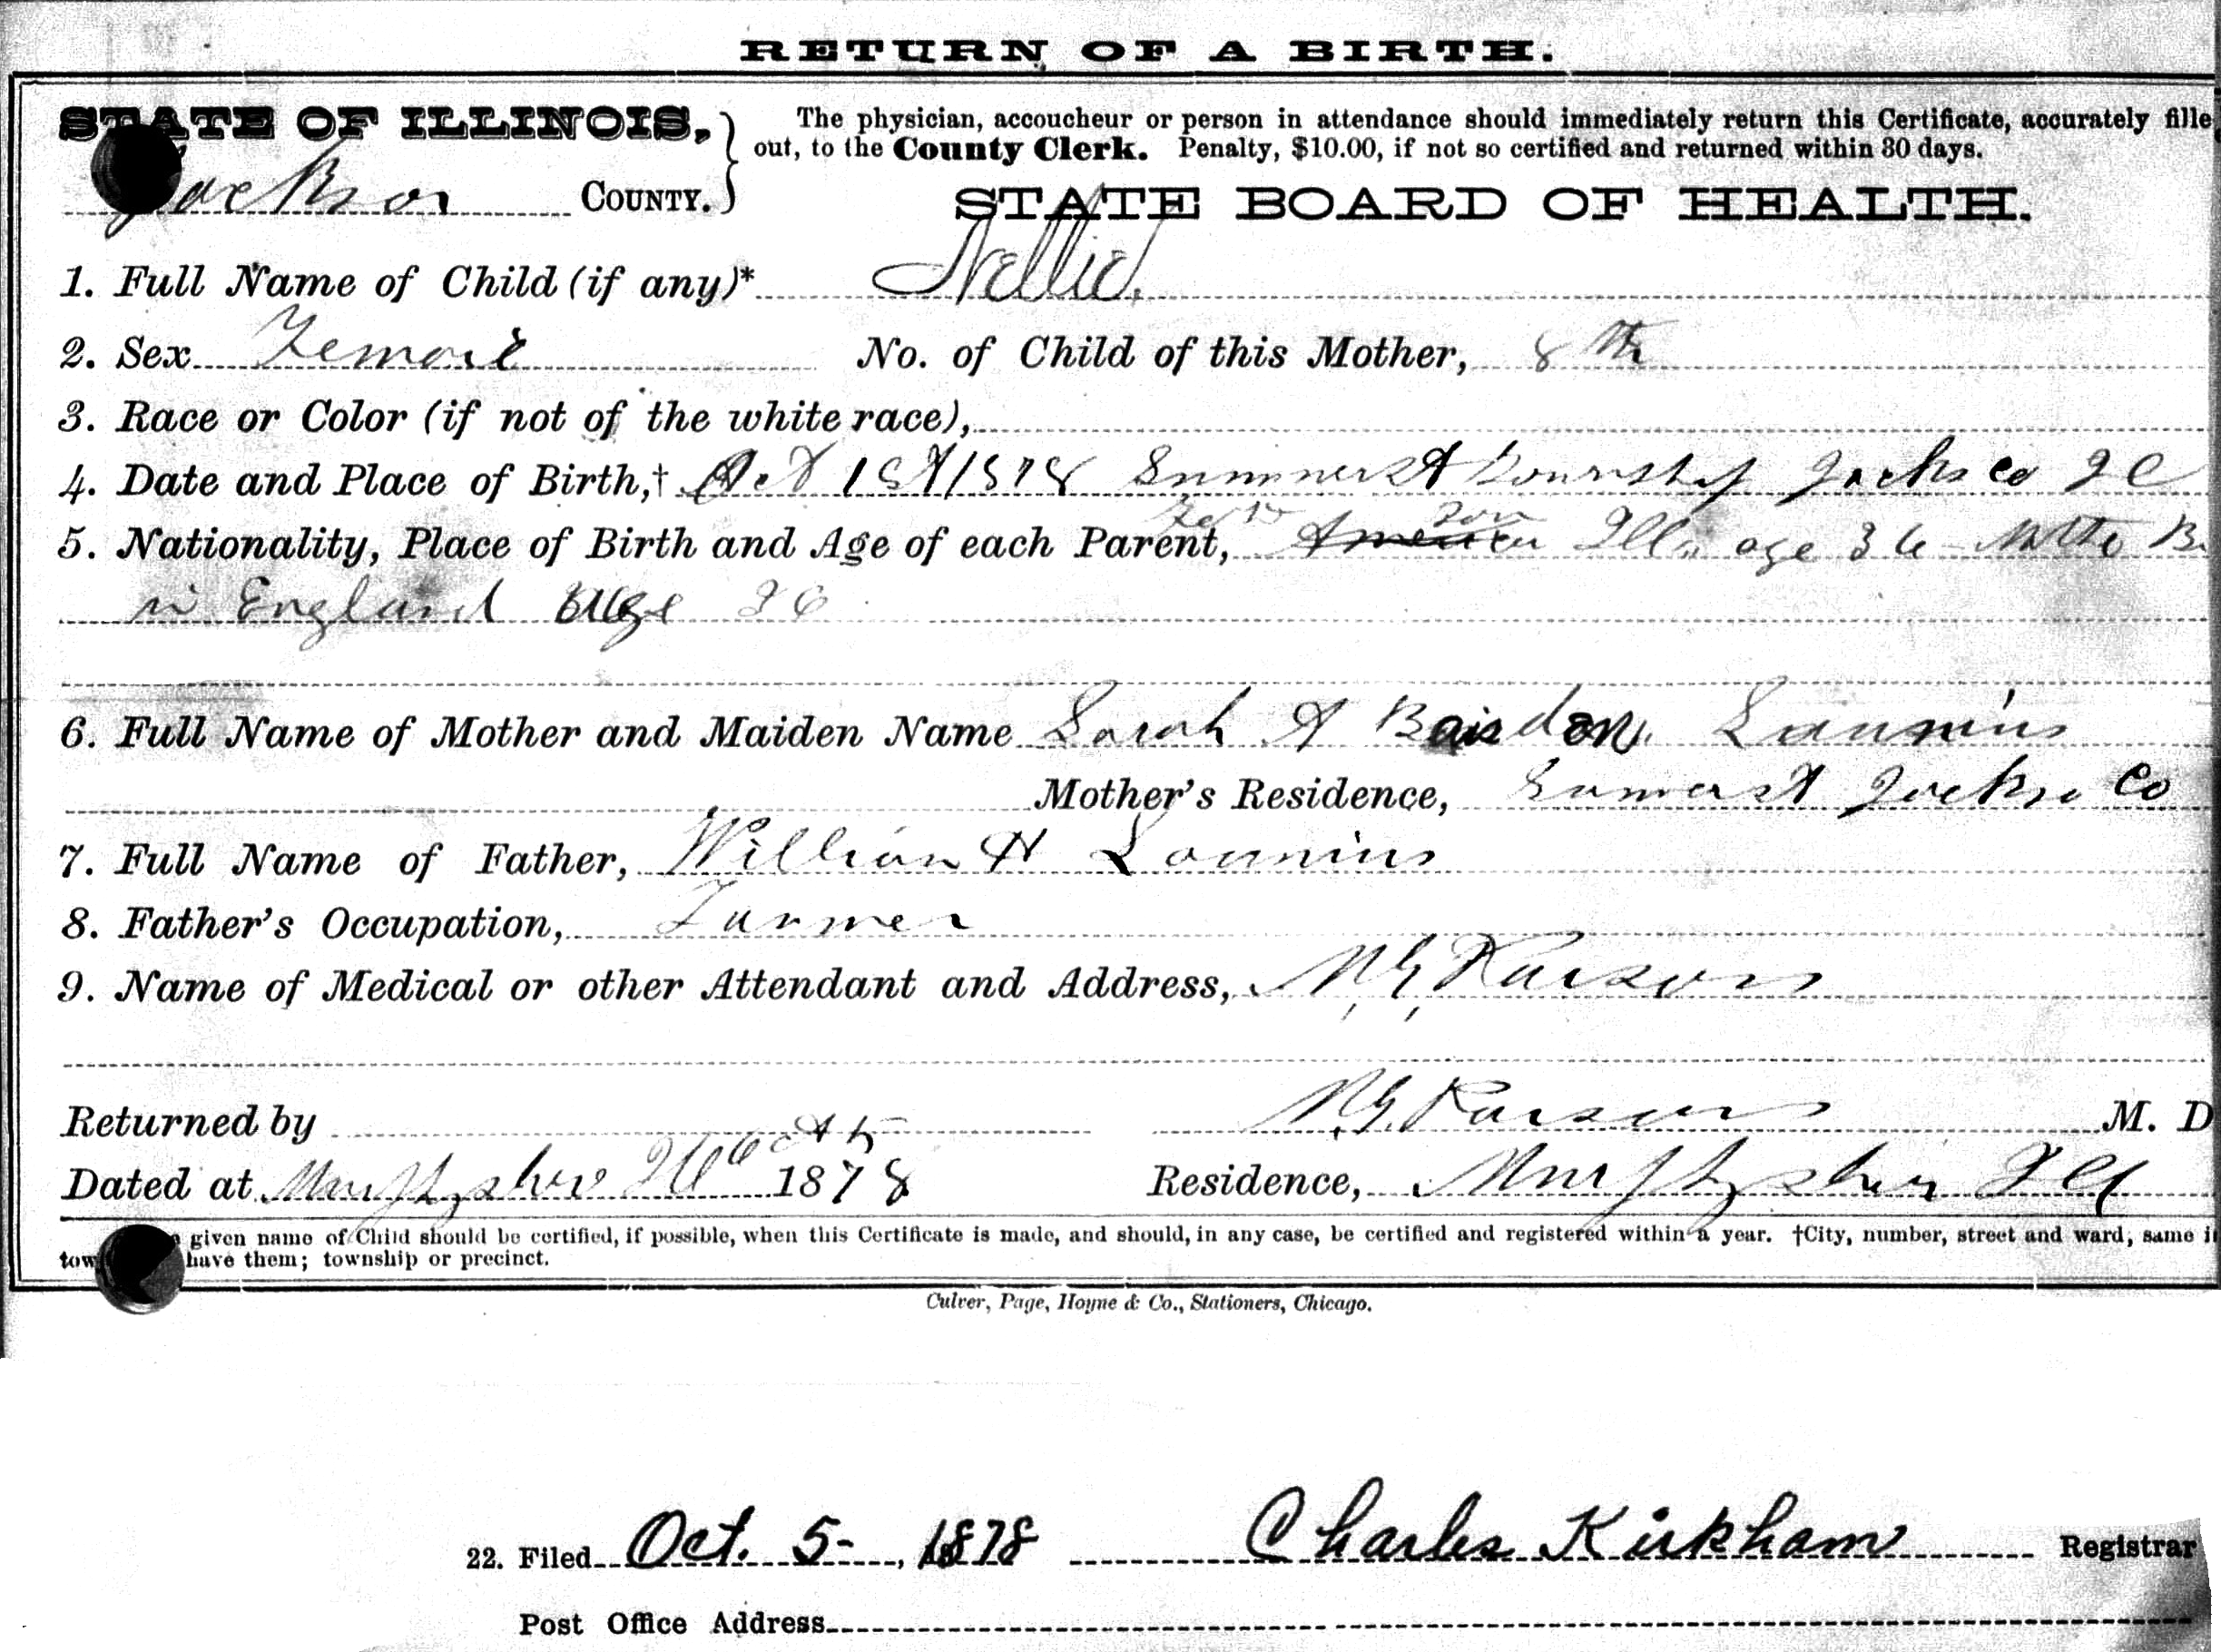 RETURN OF A BIRTH.
STATE OF ILLINOIS,
The physician, accoucheur or person in attendance should immediately return this Certificate, accurately fille
out, to the County Clerk. Penalty, $10.00, if not so certified and returned within 30 days.
Jackson COUNTY.
STATE BOARD OF HEALTH.
1. Full Name of Child (if any)* Nellie.
2. Sex Female No. of Child of this Mother, 8th
3. Race or Color (if not of the white race),
4. Date and Place of Birth,† Oct 1st/1878 Township Jackson Co
5. Nationality, Place of Birth and Age of each Parent, America Ills age 36
in England age
6. Full Name of Mother and Maiden Name Sarah A
Mother's Residence, Somerset Jackson Co
7. Full Name of Father, William H
8. Father's Occupation, Farmer
9. Name of Medical or other Attendant and Address, N. G. Parsons
Returned by N. G. Parsons M. D
Dated at Murphysboro Ill Oct 5 1878 Residence, Murphysboro Ill
given name of Child should be certified, if possible, when this Certificate is made, and should, in any case, be certified and registered within a year. †City, number, street and ward, same i
have them; township or precinct.
Culver, Page, Hoyne & Co., Stationers, Chicago.
22. Filed Oct. 5-, 1878 Charles Kirkham Registrar
Post Office Address